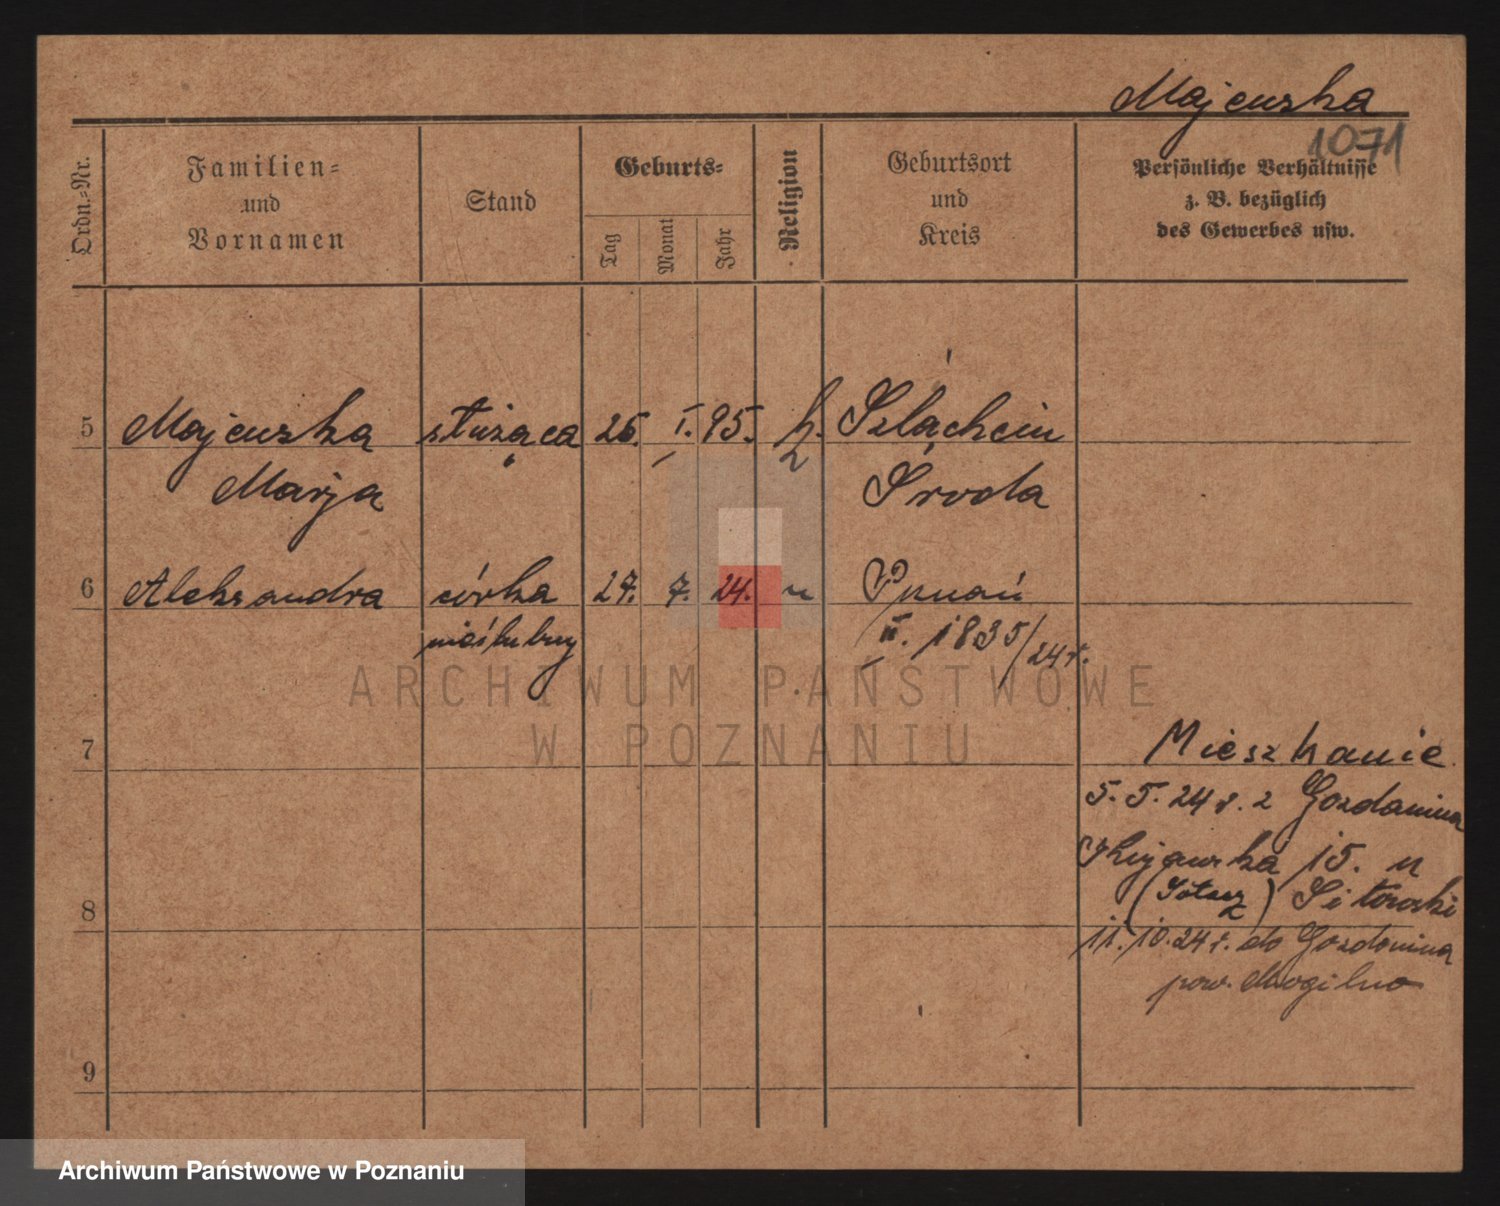 Majewska
1071
Ordn.-Nr.
Familien-
und
Vornamen
Stand
Geburts-
Tag
Monat
Jahr
Religion
Geburtsort
und
Kreis
Persönliche Verhältnisse
z. B. bezüglich
des Gewerbes usw.
5 Majewska służąca 26. I. 95. k. Szlachcin
Marja Środa
6 Aleksandra córka 27. 7. 24. " Poznań
nieślubny II. 1835/24 r.
ARCHIWUM PAŃSTWOWE
W POZNANIU
7 Mieszkanie
5. 5. 24 r. z Gozdanina
15. u
8 (Sołacz) Sitowski
11. 10. 24 r. do Gozdanina
pow. Mogilno
9
Archiwum Państwowe w Poznaniu